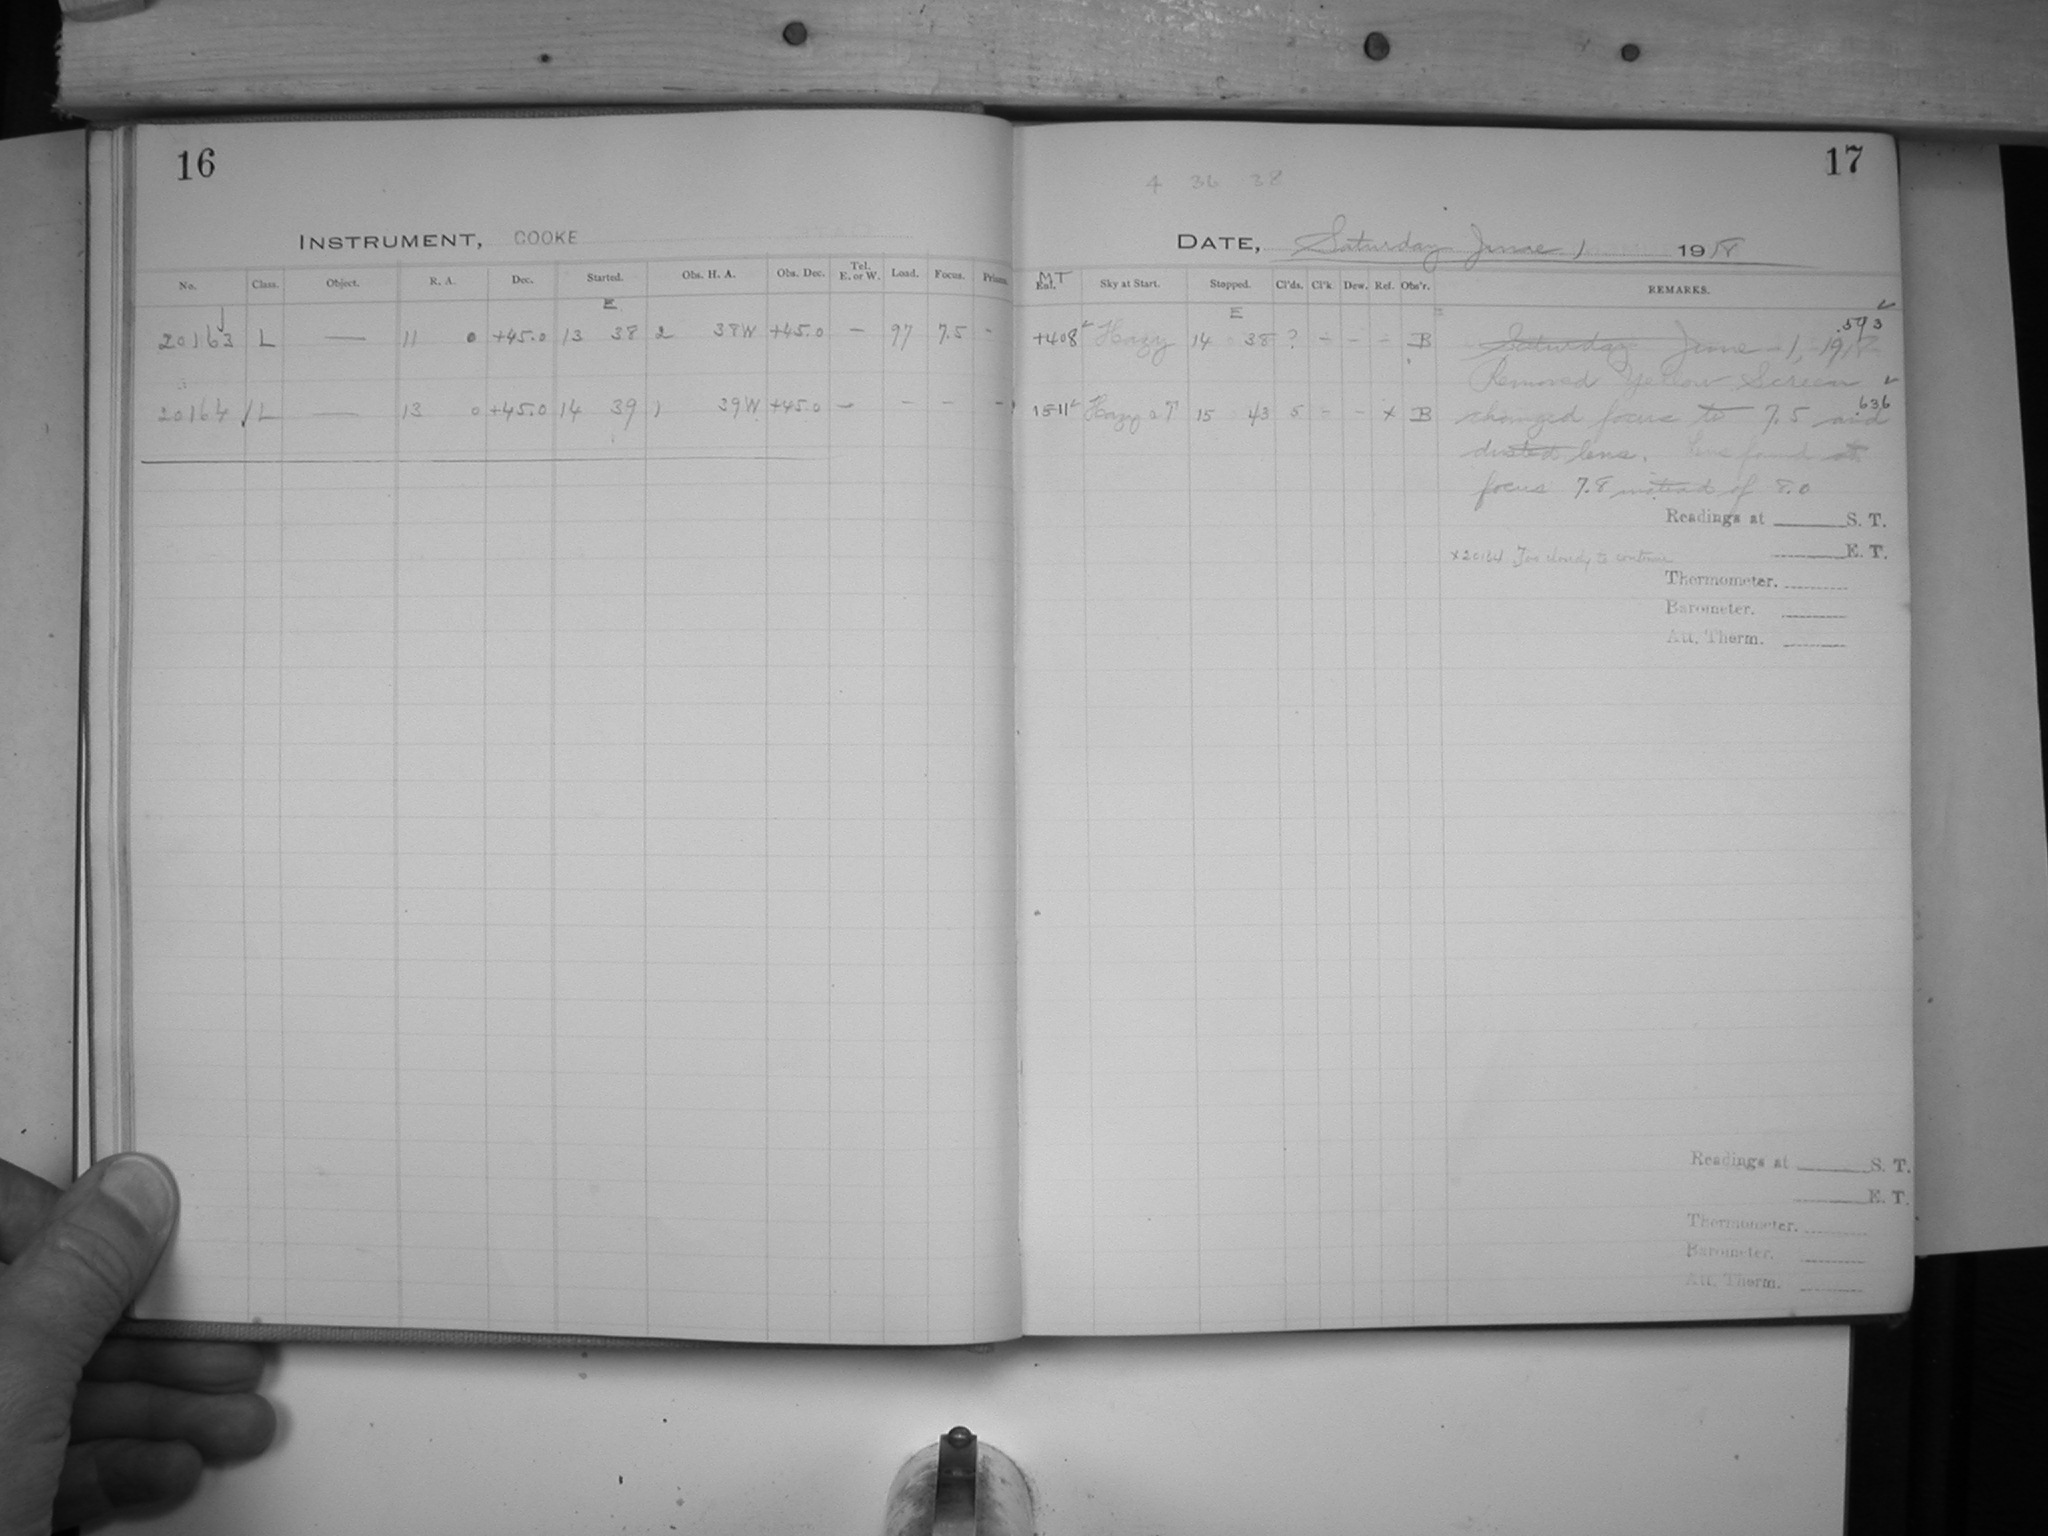 16
INSTRUMENT, COOKE
No. Class. Object. R. A. Dec. Started. Obs. H. A. Obs. Dec. Tel. E. or W. Load. Focus. Prisms.
E
20163 L — 11 0 +45.0 13 38 2 38W +45.0 — 97 7.5 -
20164 √ L — 13 0 +45.0 14 39 1 39W +45.0 — - - -
17
4 36 38
DATE, Saturday June 1 1918
MT
Ext. Sky at Start. Stopped. Cl'ds. Cl'k Dew. Ref. Obs'r. REMARKS.
E
.593
1408 Hazy 14 38 ? - - - B Saturday June 1, 1918
Removed Yellow Screen
.636
1511 Hazy a T 15 43 5 - - x B changed focus to 7.5 and
dusted lens. Lens found at
focus 7.8 instead of 8.0
Readings at ____ S. T.
x20164 Too cloudy to continue ____ E. T.
Thermometer.
Barometer.
Att. Therm.
Readings at ____ S. T.
____ E. T.
Thermometer.
Barometer.
Att. Therm.